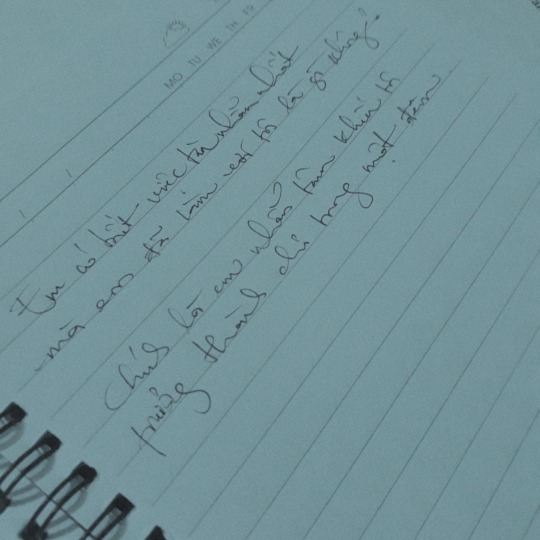 MO TU WE TH FR
Em có biết việc tàn nhẫn nhất
mà em đã làm với tôi là gì không?
Chính là em nhẫn tâm khiến tô
trưởng thành chỉ trong một đêm